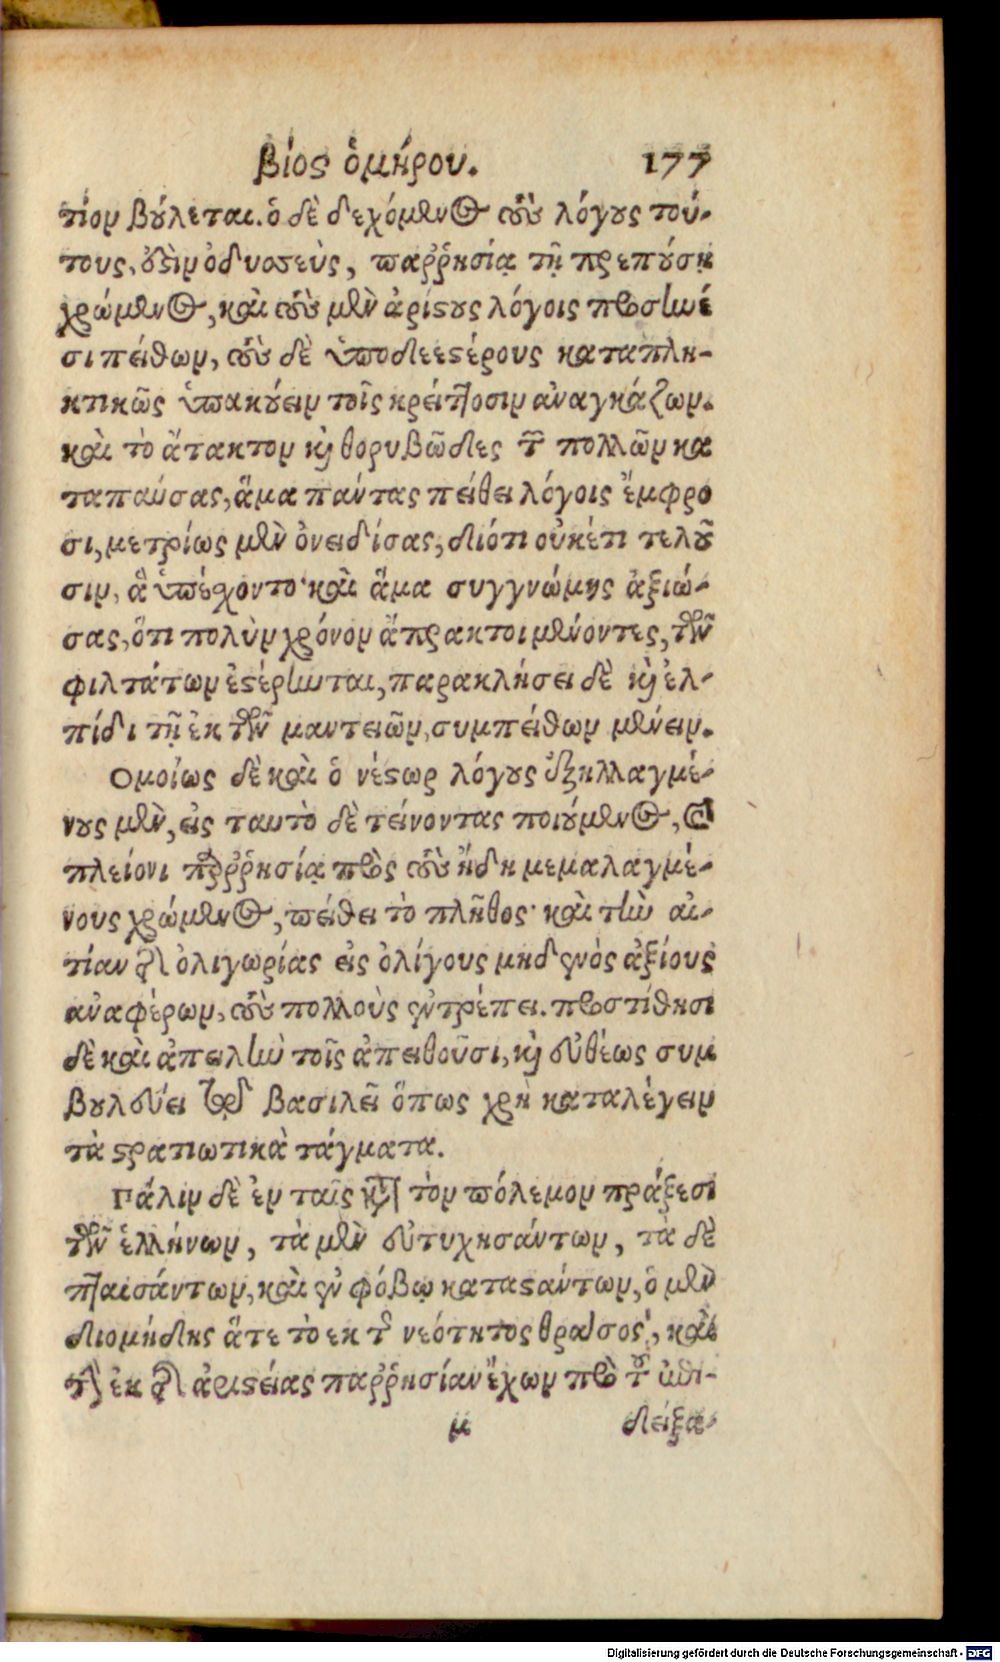 βίος ὁμήρου. 177
τίον βούλεται. ὁ δὲ δεχόμενος τοὺς λόγους τού-
τους, ἐστὶν ὀδυσσεὺς, παῤῥησίᾳ τῇ πρεπούσῃ
χρώμενος, καὶ τοὺς μὲν ἀρίστους λόγοις προσηνέ
σι πείθων, τοὺς δὲ ὑποδεεστέρους καταπλη-
κτικῶς ὑπακούειν τοῖς κρείττοσιν ἀναγκάζων.
καὶ τὸ ἄτακτον καὶ θορυβῶδες τῶν πολλῶν κα
ταπαύσας, ἅμα πάντας πείθει λόγοις ἔμφρο
σι, μετρίως μὲν ὀνειδίσας, διότι οὐκέτι τελοῦ
σιν, ἃ ὑπέχοντο· καὶ ἅμα συγγνώμης ἀξιώ-
σας, ὅτι πολὺν χρόνον ἄπρακτοι μένοντες, τῶν
φιλτάτων ἐστέρηνται, παρακλήσει δὲ καὶ ἐλ-
πίδι τῇ ἐκ τῶν μαντειῶν, συμπείθων μένειν.
Ομοίως δὲ καὶ ὁ νέστωρ λόγους ἐξηλλαγμέ-
νους μὲν, εἰς ταυτὸ δὲ τείνοντας ποιούμενος, καὶ
πλείονι παῤῥησίᾳ πρὸς τοὺς ἤδη μεμαλαγμέ-
νους χρώμενος, πείθει τὸ πλῆθος· καὶ τὴν αἰ-
τίαν τῆς ὀλιγωρίας εἰς ὀλίγους μηδενὸς ἀξίους
ἀναφέρων, τοὺς πολλοὺς ἐντρέπει. προστίθησι
δὲ καὶ ἀπειλὴν τοῖς ἀπειθοῦσι, καὶ εὐθέως συμ
βουλεύει τῷ βασιλεῖ ὅπως χρὴ καταλέγειν
τὰ στρατιωτικὰ τάγματα.
Πάλιν δὲ ἐν ταῖς κατὰ τὸν πόλεμον πράξεσι
τῶν ἑλλήνων, τὰ μὲν εὐτυχησάντων, τὰ δὲ
πταισάντων, καὶ ἐν φόβῳ καταστάντων, ὁ μὲν
διομήδης ἅτε τὸ εκ τῆς νεότητος θράσος, καὶ
τὴν ἐκ τῆς ἀριστείας παῤῥησίαν ἔχων πρὸ τοῦ ἐπι-
μ δείξα-
Digitalisierung gefördert durch die Deutsche Forschungsgemeinschaft - DFG